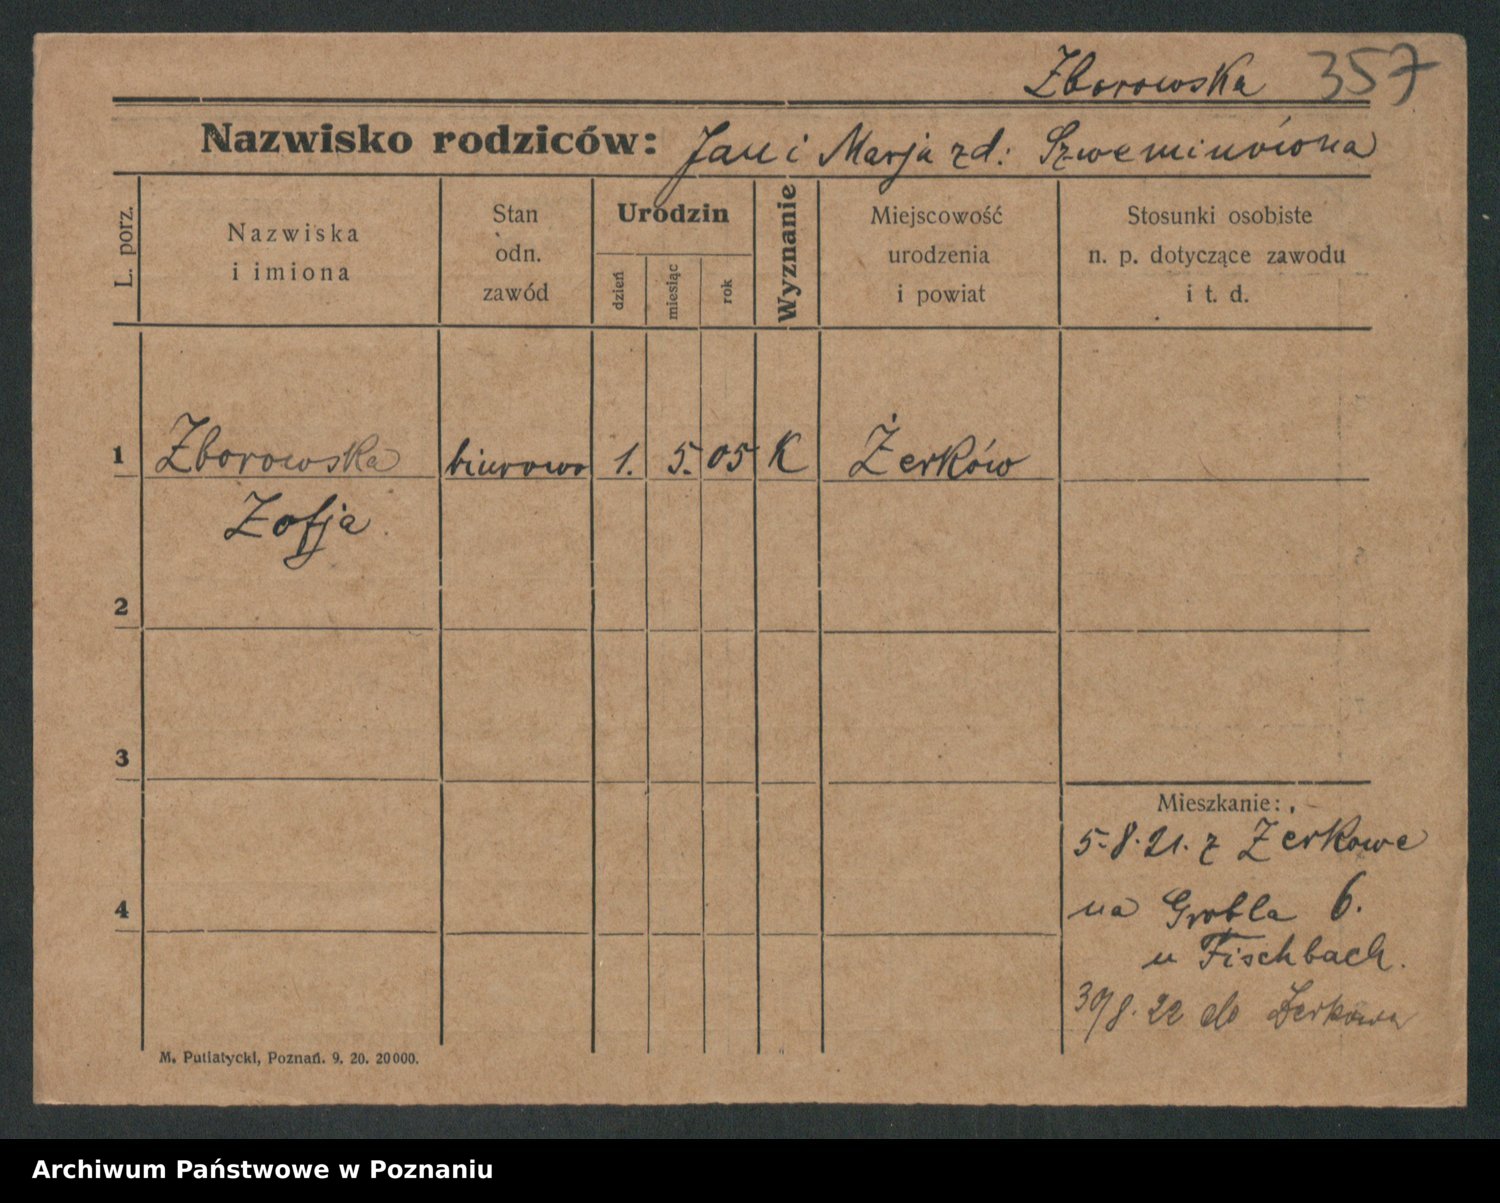 Zborowska 357
Nazwisko rodziców: Jan i Marja zd:
L. porz.
Nazwiska
i imiona
Stan
odn.
zawód
Urodzin
dzień
miesiąc
rok
Wyznanie
Miejscowość
urodzenia
i powiat
Stosunki osobiste
n. p. dotyczące zawodu
i t. d.
1 Zborowska biurowa 1. 5. 05 K Żerków
Zofja
2
3
4
Mieszkanie:
5.8.21. z Żerkowa
na Grobla 6.
u Fischbach.
30/8.22 do Żerkowa
M. Putiatycki, Poznań. 9. 20. 20000.
Archiwum Państwowe w Poznaniu